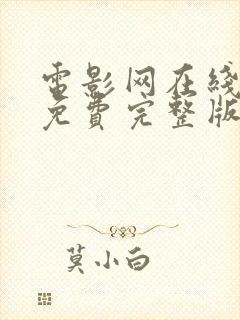 電影网在綫
免費完整版
莫小白